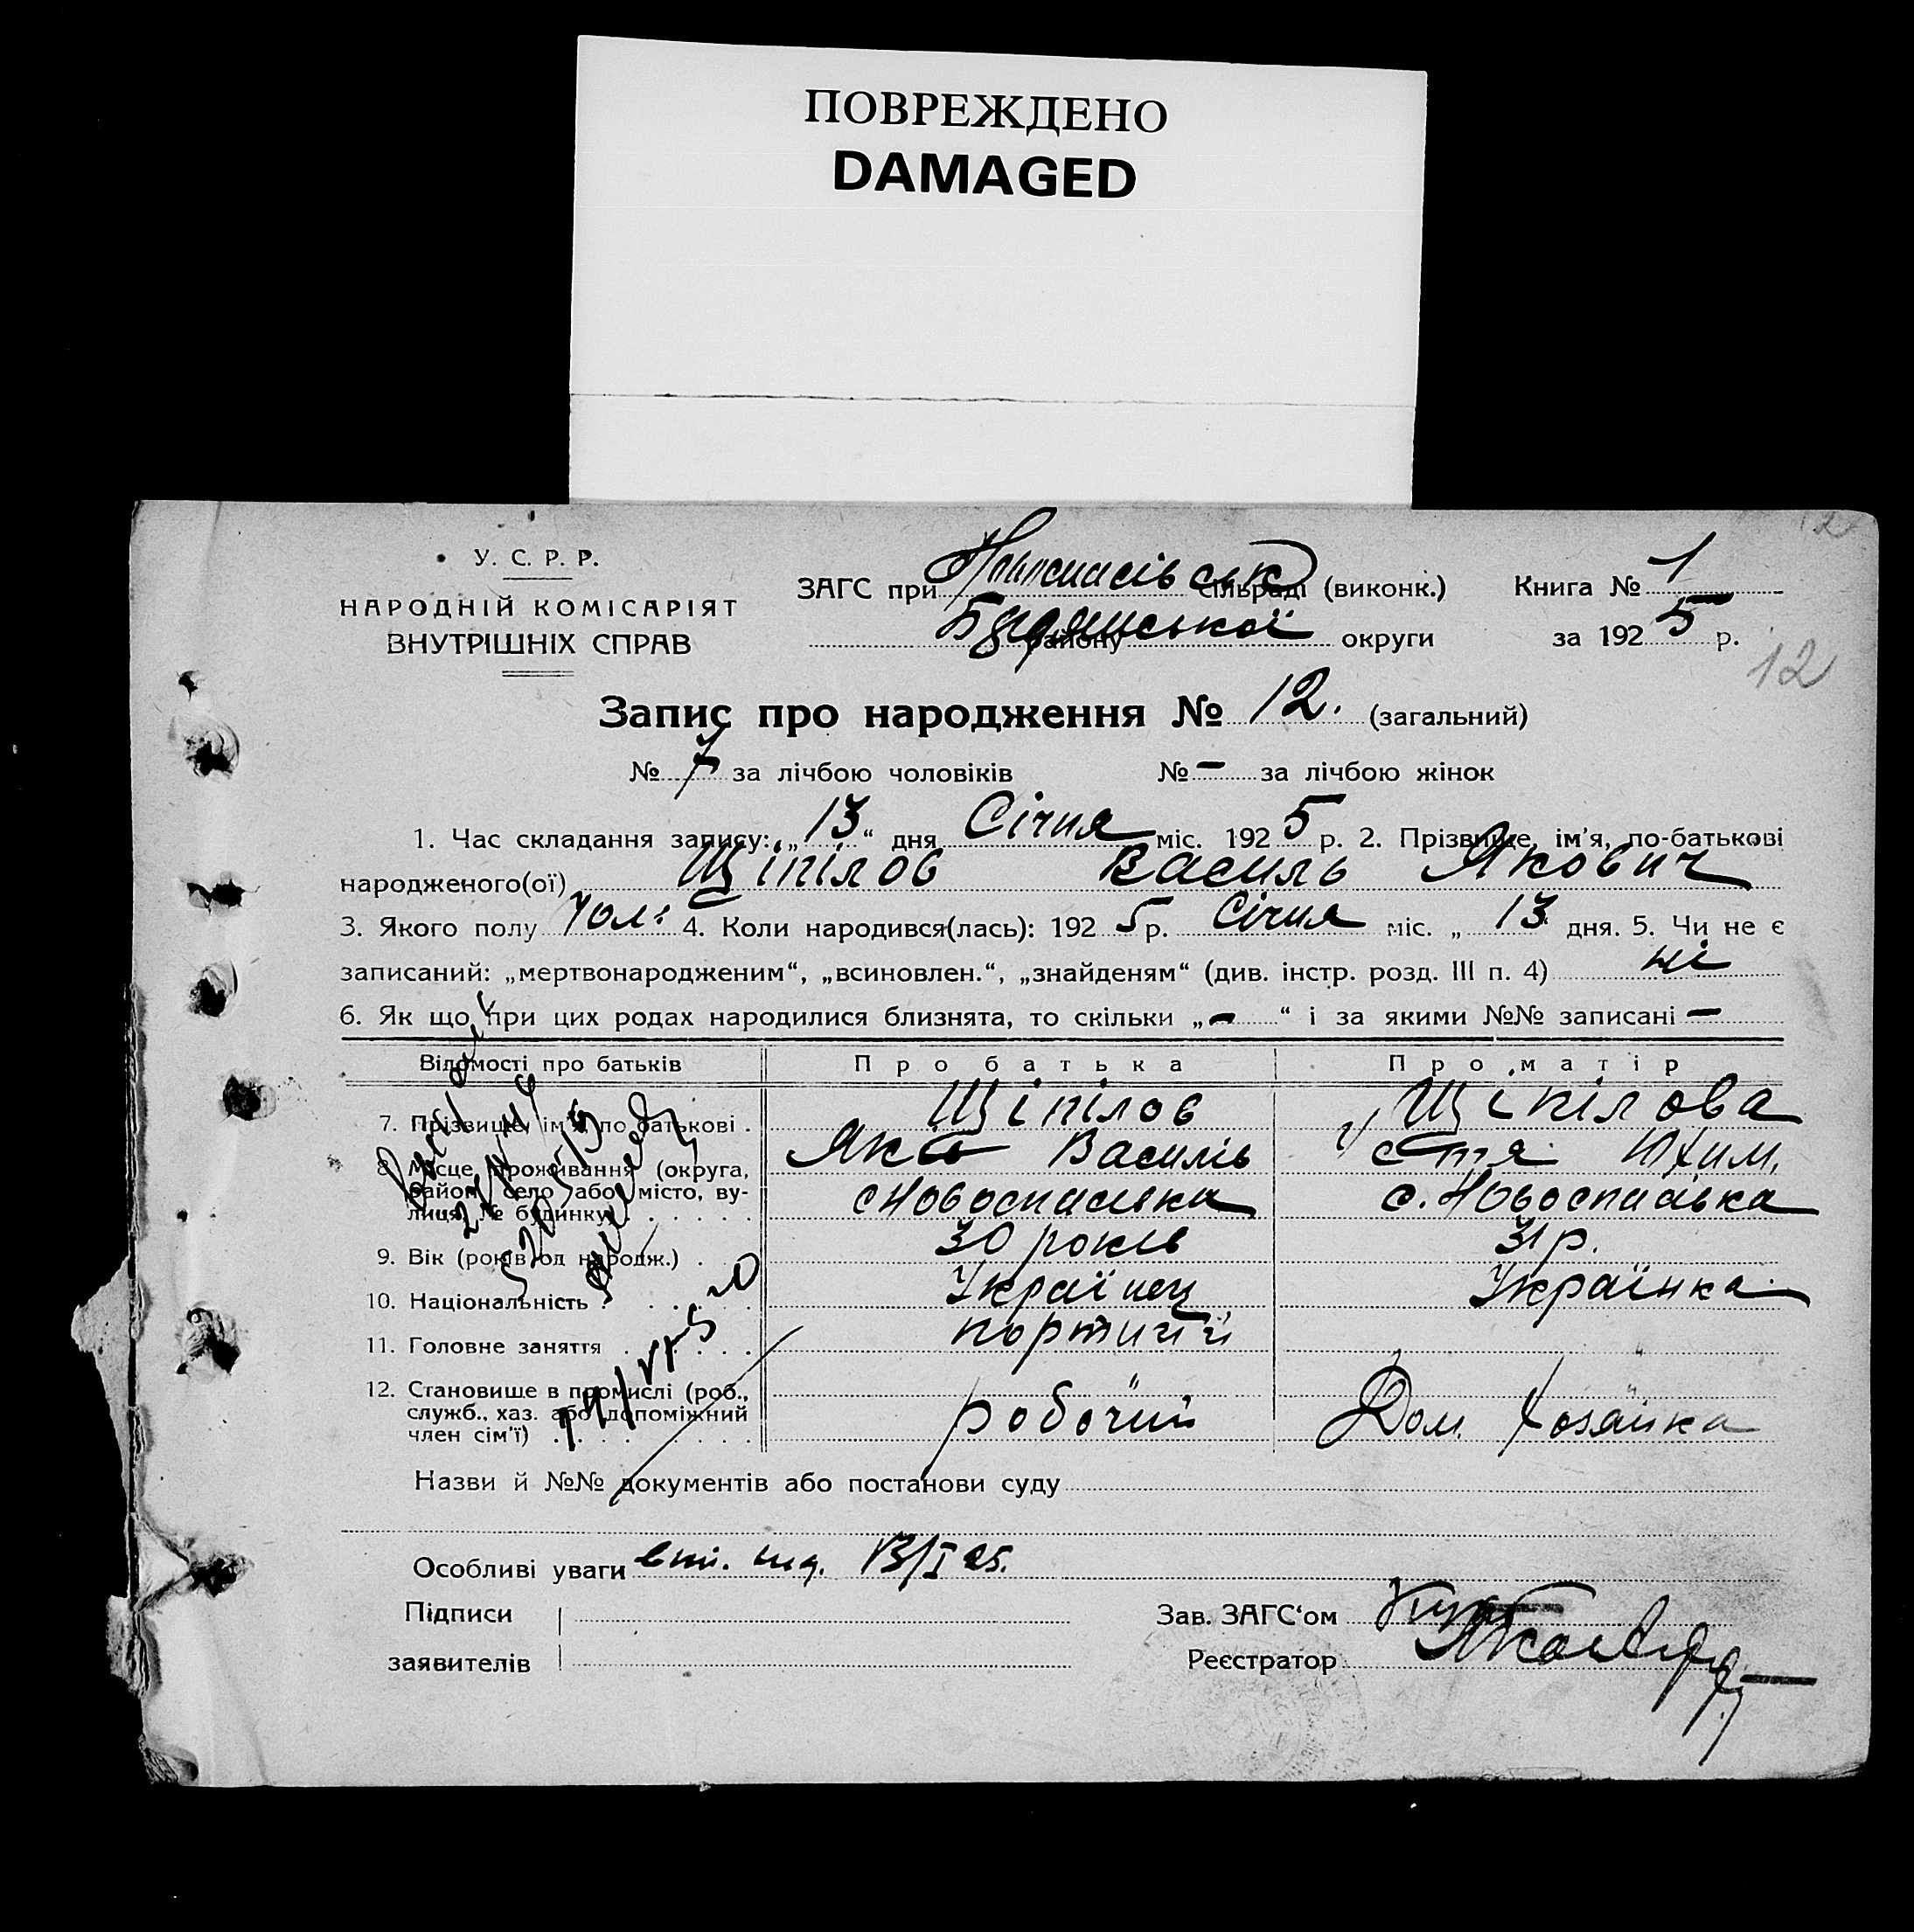 ПОВРЕЖДЕНО
DAMAGED
У. С. Р. Р.
НАРОДНІЙ КОМІСАРІЯТ
ВНУТРІШНІХ СПРАВ
ЗАГС при Новоспасівськ сільраді (виконк.)
району округи
Книга № 1
за 1925 р.
12
Запис про народження № 12. (загальний)
№ 7 за лічбою чоловіків № – за лічбою жінок
1. Час складання запису: „13“ дня Січня міс. 1925 р. 2. Прізвище, ім'я, по-батькові
народженого(ої) Щіпілов Василь Якович
3. Якого полу чол: 4. Коли народився(лась): 1925 р. Січня міс. „13 дня. 5. Чи не є
записаний: „мертвонародженим“, „всиновлен.“, „знайденям“ (див. інстр. розд. III п. 4) ні
6. Як що при цих родах народилися близнята, то скільки „–“ і за якими №№ записані –
Відомості про батьків Про батька Про матір
7. Прізвище, ім'я, по батькові . Щіпілов Щіпілова
Яків Василів Юхим.
8. Місце проживання (округа, район, село або місто, вулиця, № будинку) с Новоспасівка с. Новоспасівка
9. Вік (років од народж.) . 30 років 31 р.
10. Національність . Українец Українка
11. Головне заняття портний "
12. Становище в промислі (роб., " "
служб., хаз. або допоміжний робочий Дом. хозяйка
член сім'ї)
Назви й №№ документів або постанови суду
Особливі уваги 13/I 25.
Підписи
заявителів
Зав. ЗАГС‘ом
Реєстратор